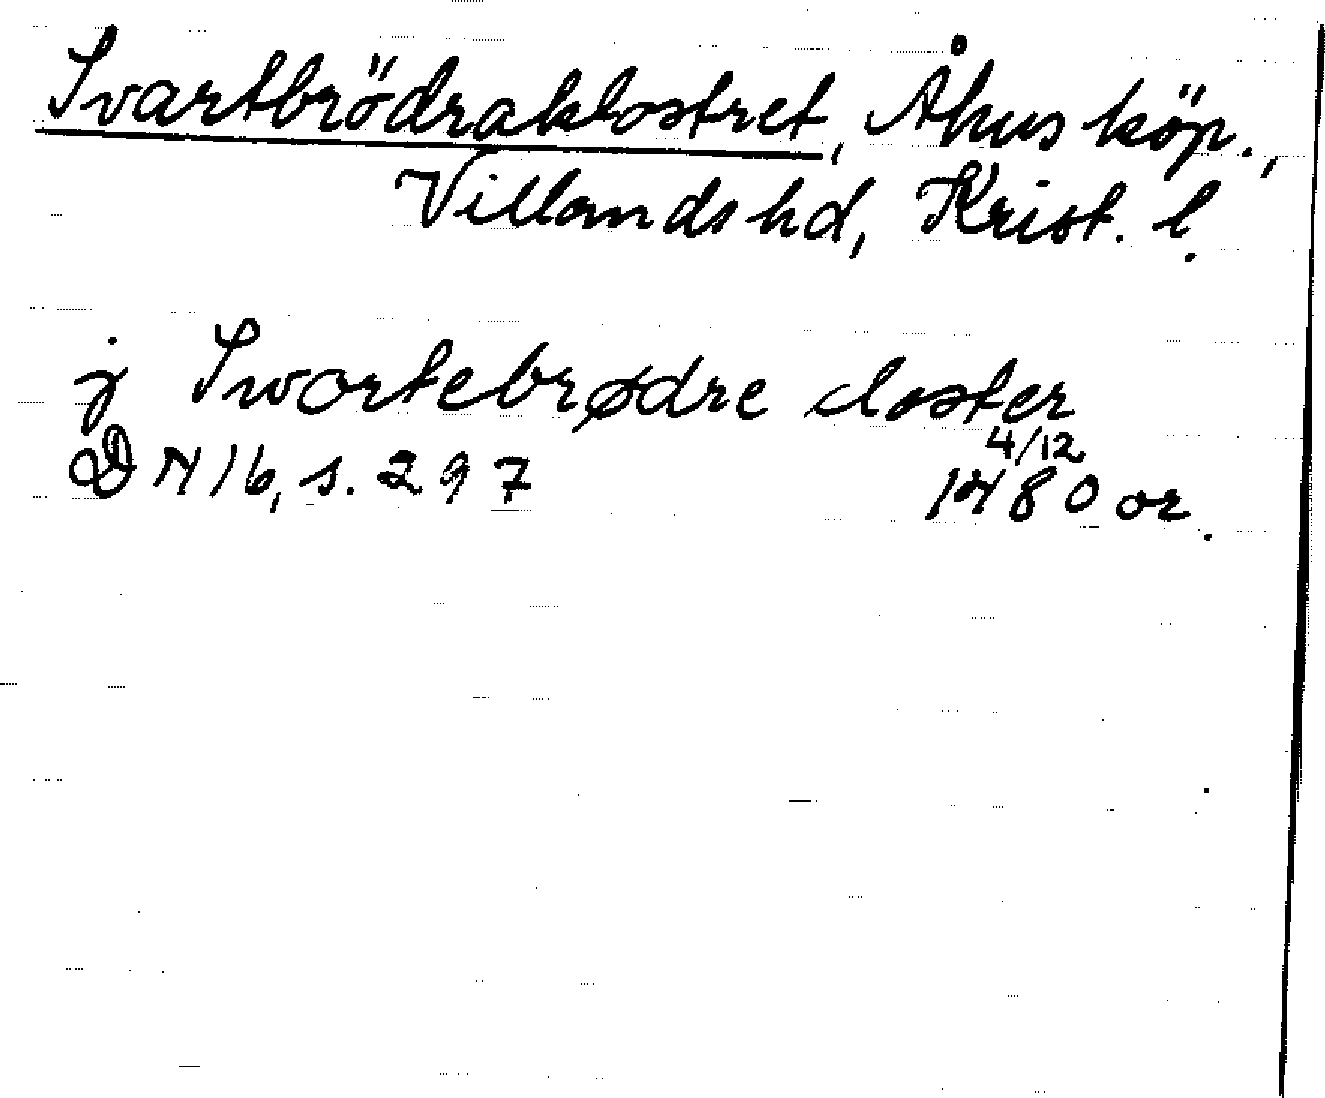 Svartbrödraklostret, Åhus köp.,
Villands hd, Krist. l.
j Swortebrødre closter
DN 16, s. 297 4/12 1480 or.